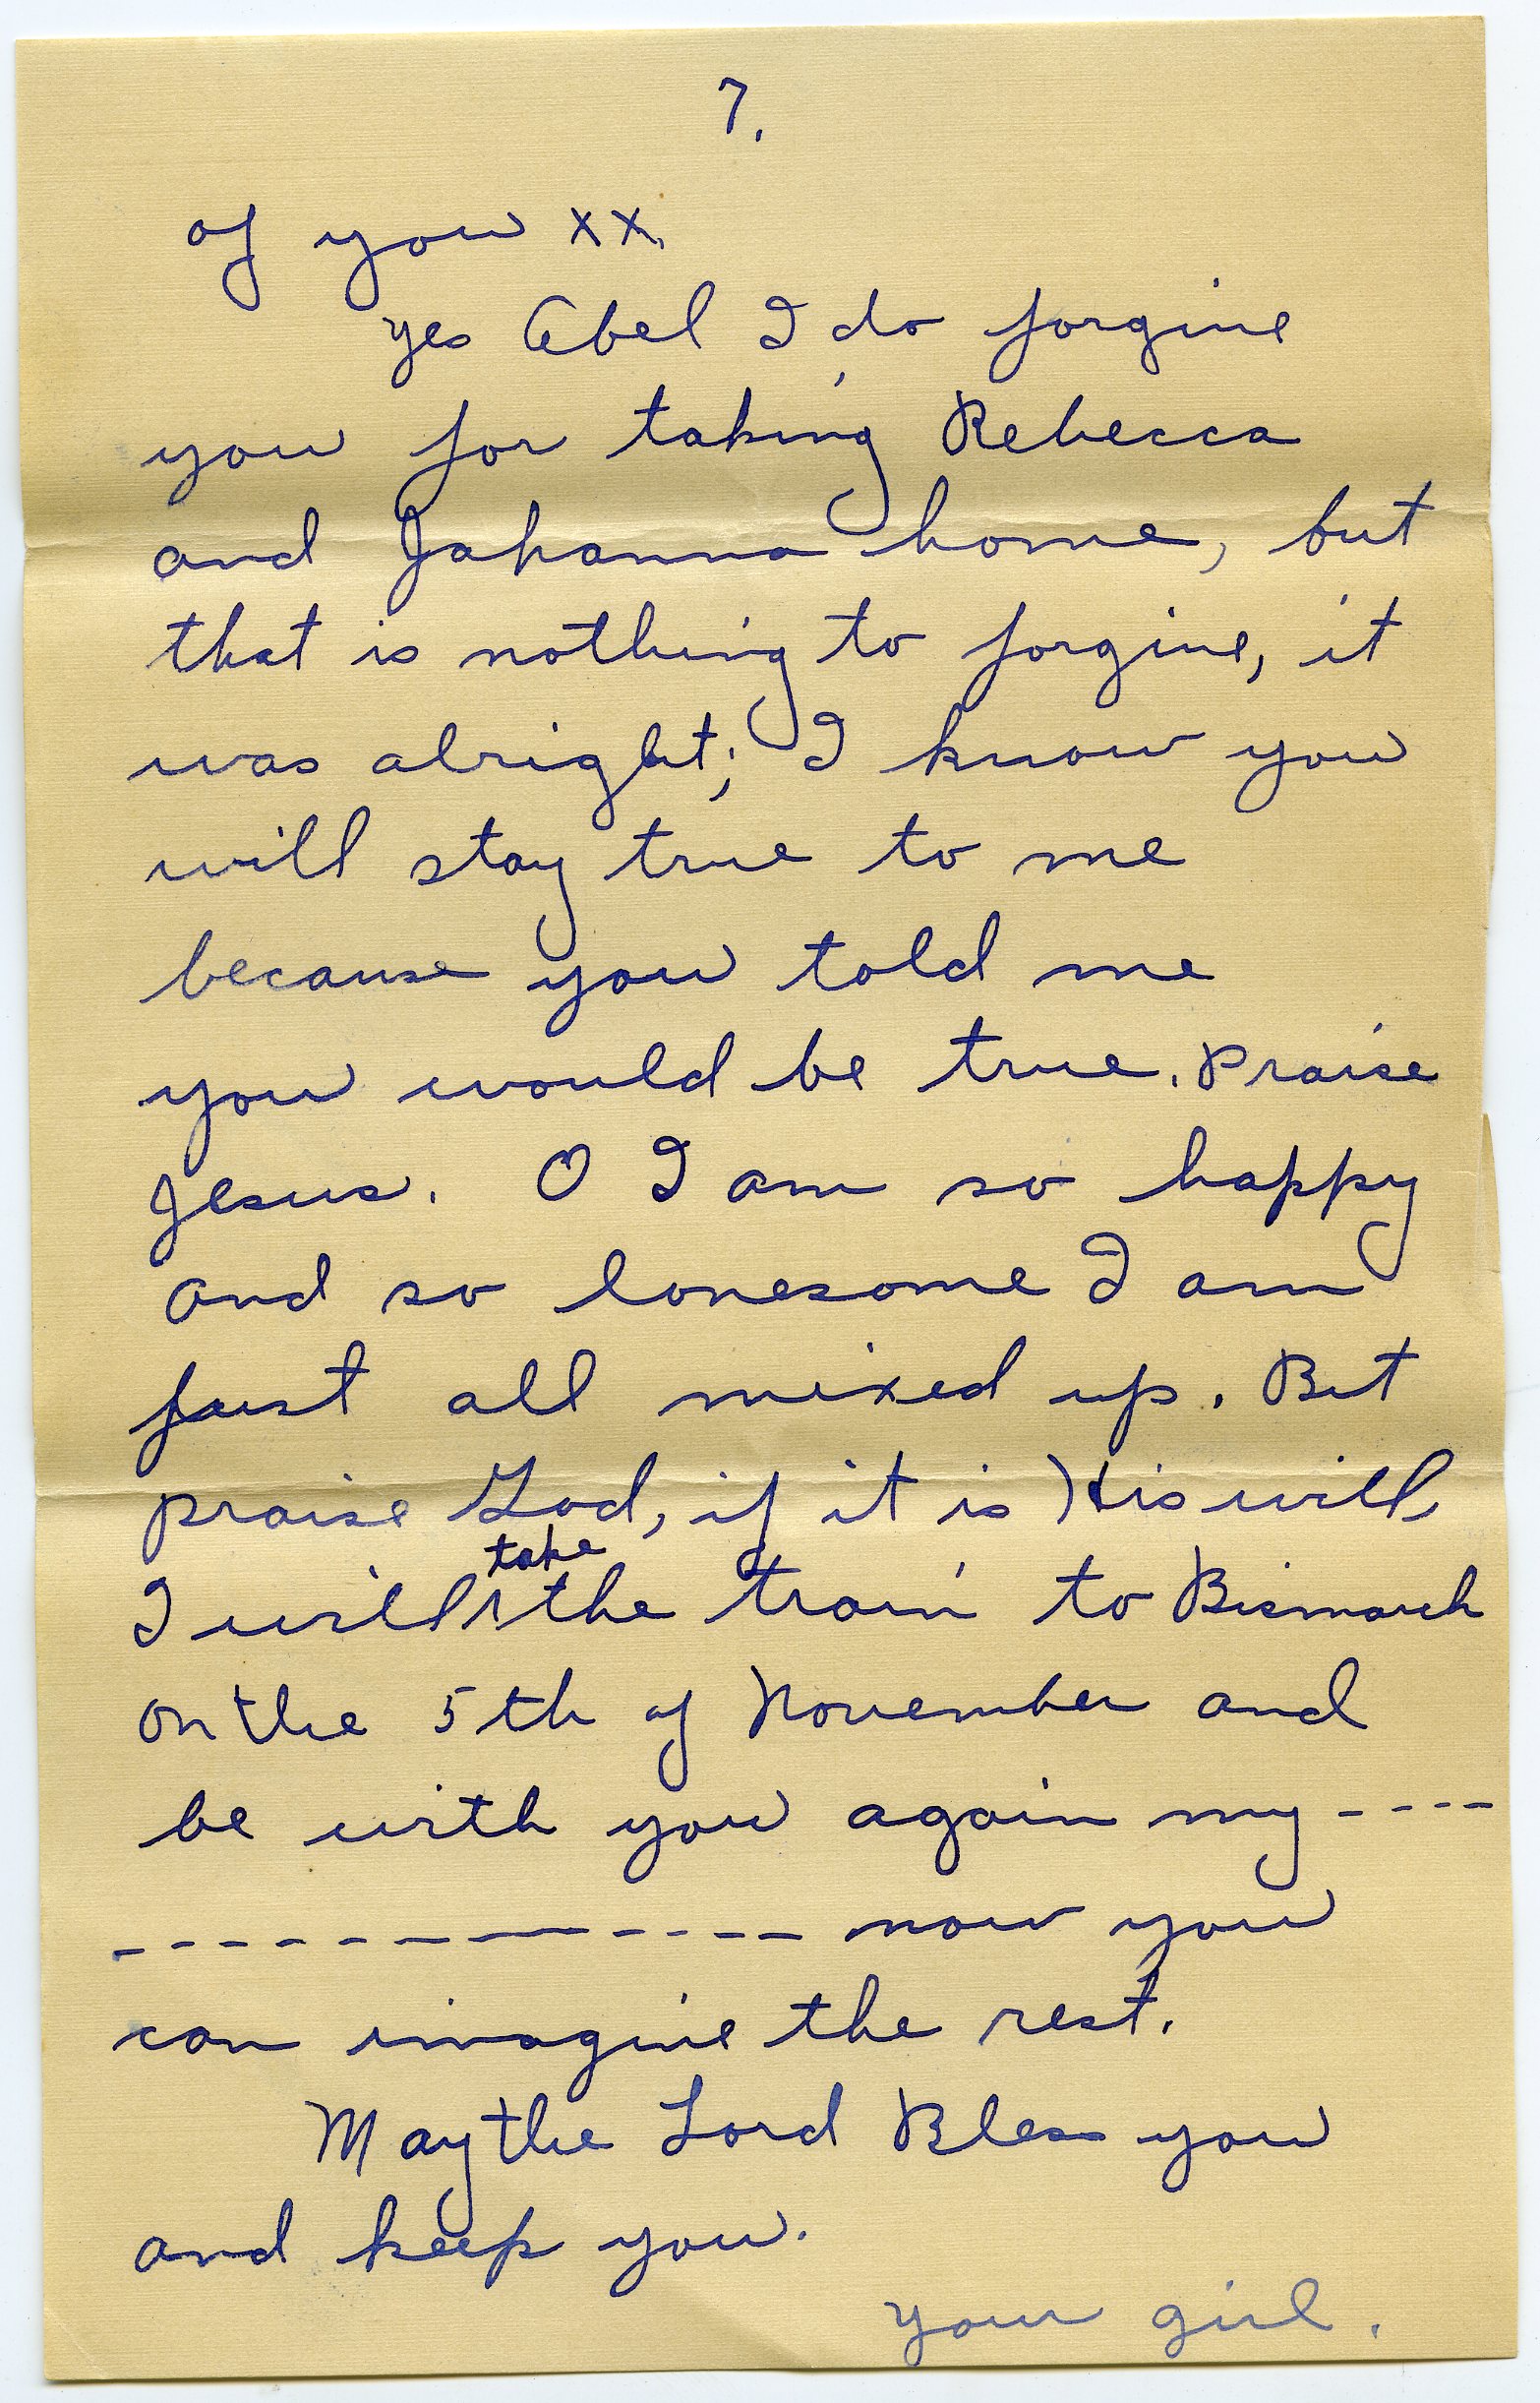 7.
of you xx.
yes Abel I do forgive
you for taking Rebecca
and Johanna home, but
that is nothing to forgive, it
was alright; I know you
will stay true to me
because you told me
you would be true. Praise
Jesus. O I am so happy
and so lonesome I am
just all mixed up. But
praise God, if it is His will,
I will take the train to Bismarck
on the 5th of November and
be with you again my ----
------------ now you
can imagine the rest.
May the Lord Bless you
and keep you.
your girl.